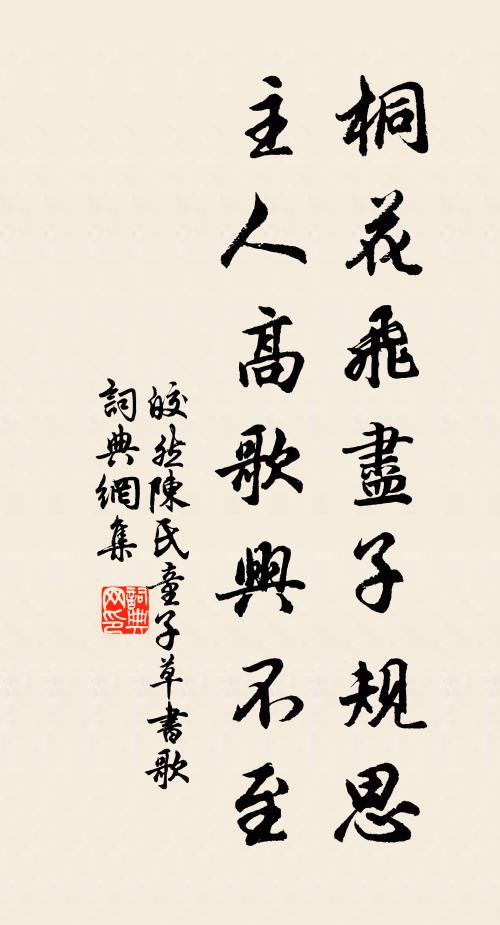 桐花飛盡子規思
主人高歌興不至
皎然陳氏童子草書歌
詞典網集
詞典
网印